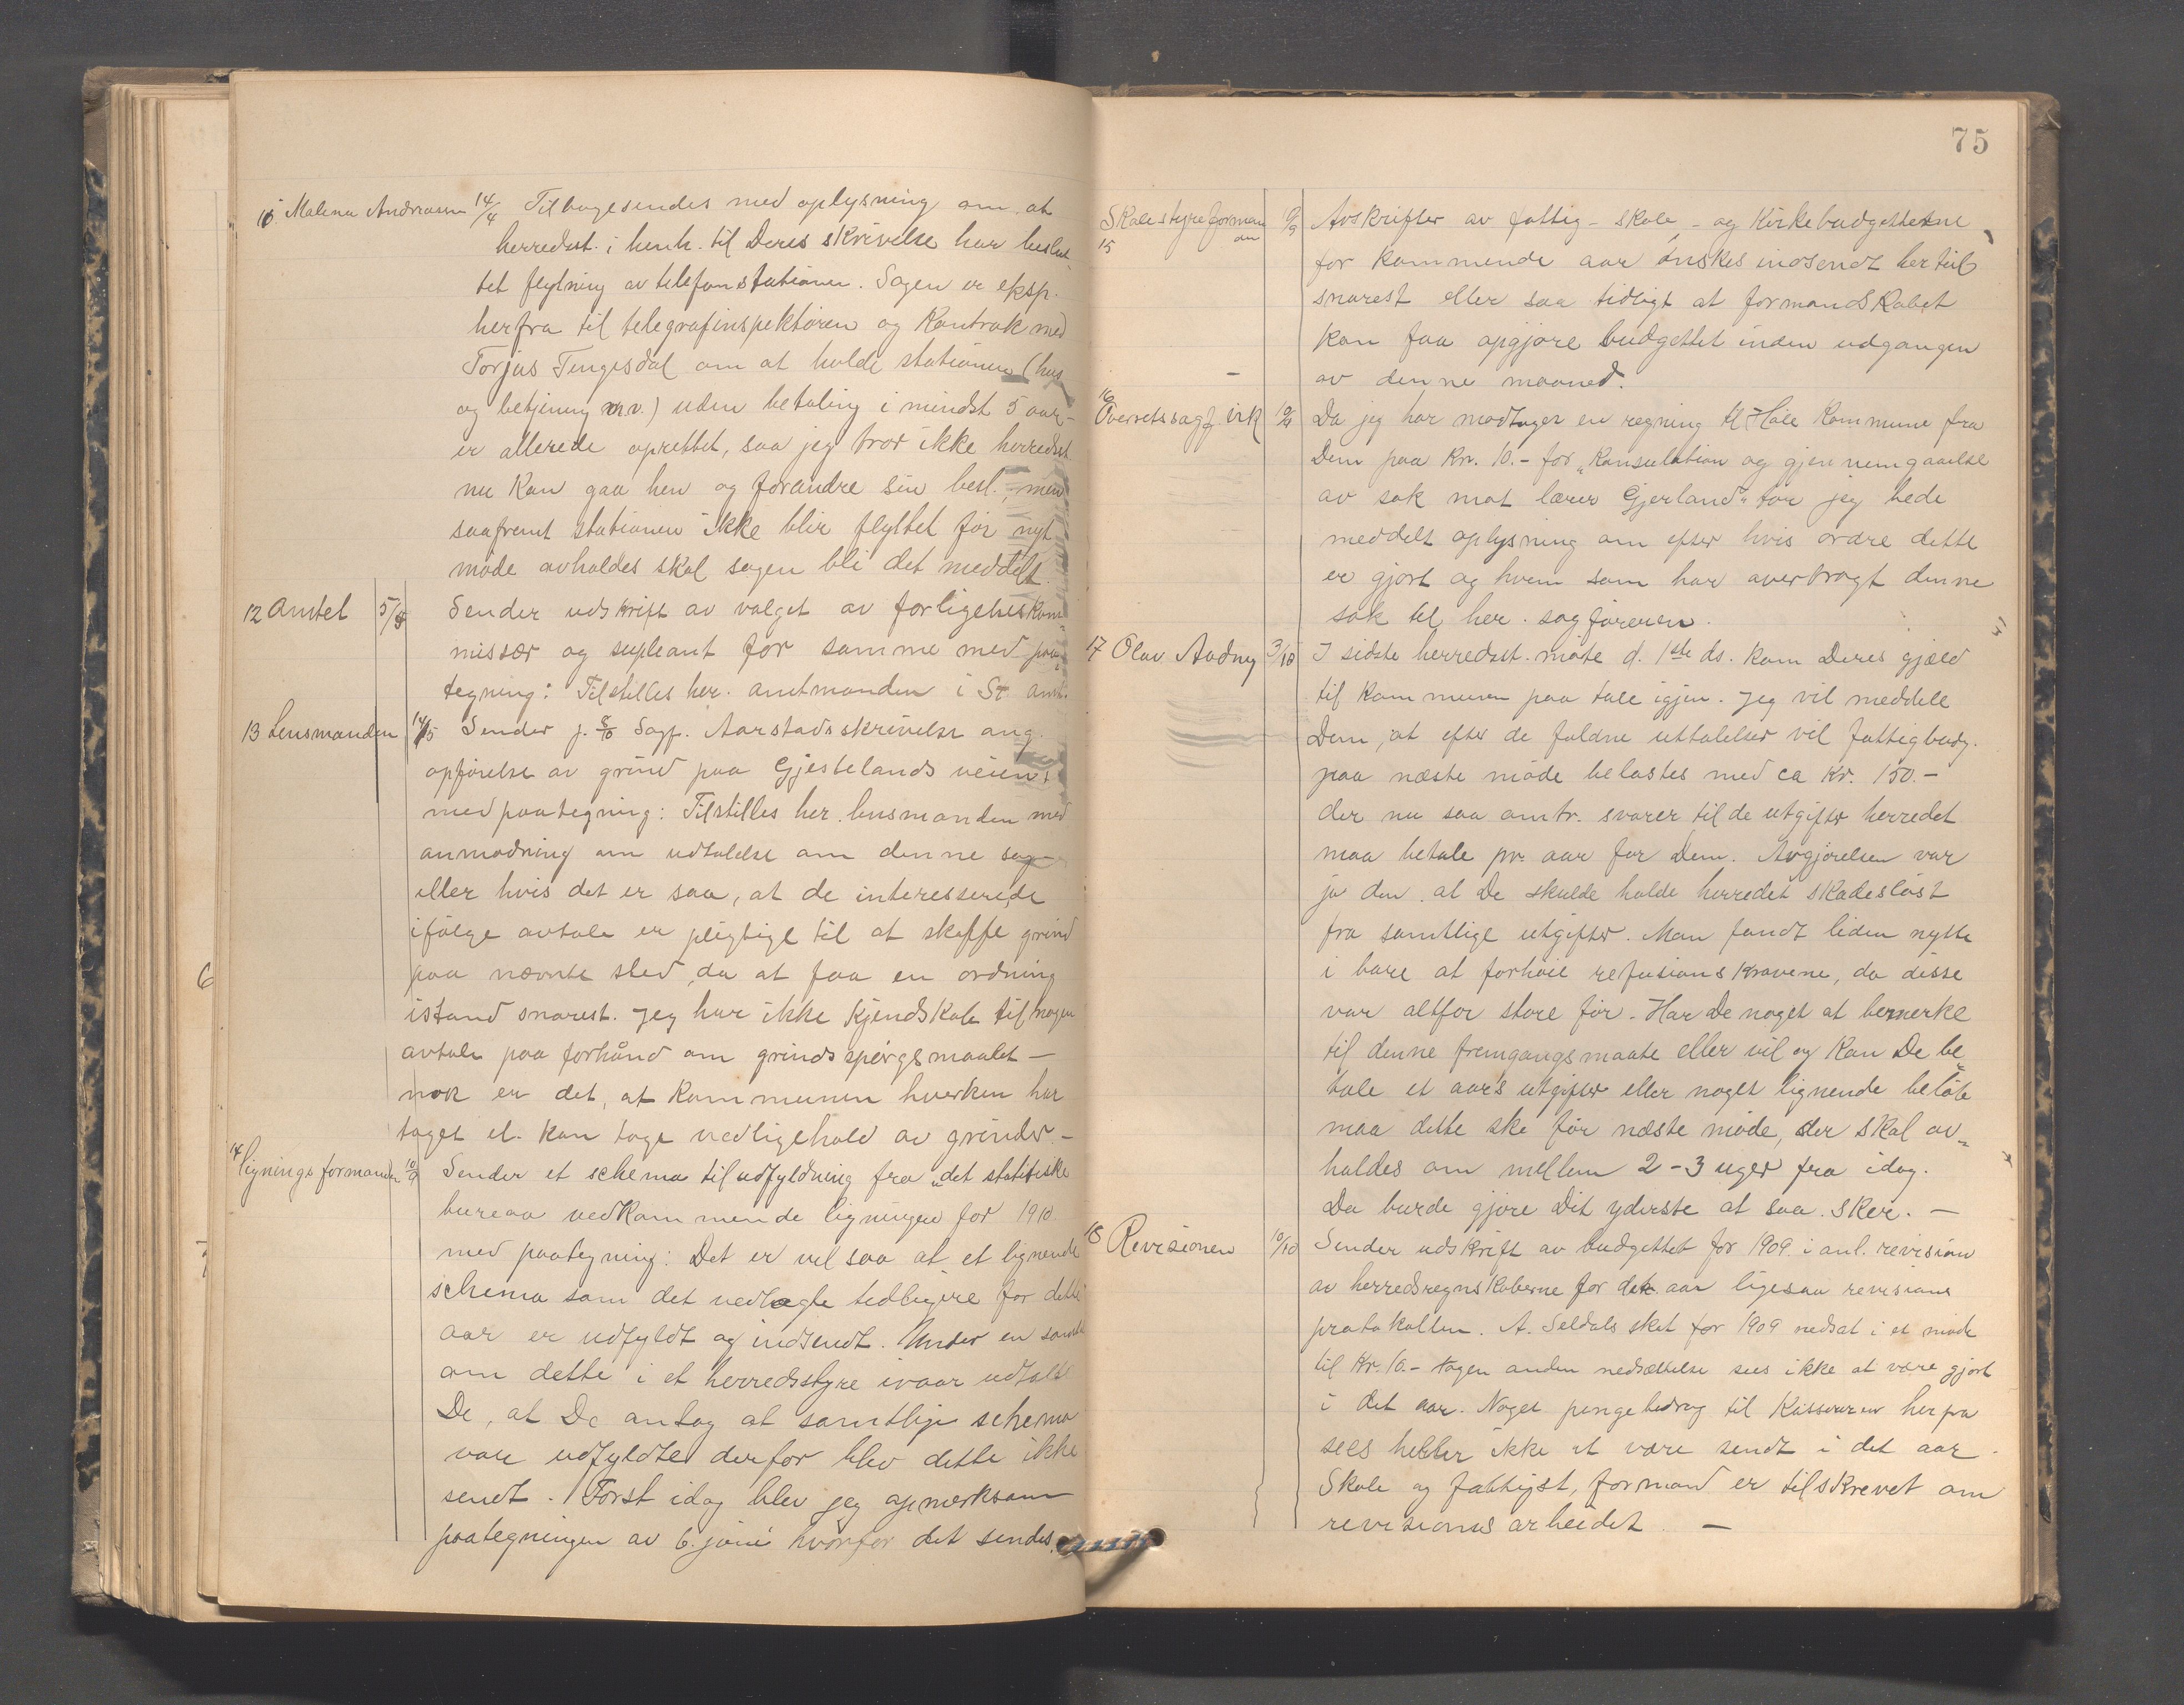 Malena Andreasen 14/4 Tilbagesendes med oplysning om at
herredsst. i henh. til Deres skrivelse har beslut
tet flytning av telefonstationen. Sagen er eksp.
herfra til telegrafinspektøren og Kontrak med
Torjus Tengesdal om at holde stationen (hus
og betjening m.v.) uden betaling i mindst 5 aar-
er allerede oprettet, saa jeg tror ikke herredsst
nu kan gaa hen og forandre sin besl., men
saafremt stationen ikke blir flyttet før nyt
møde avholdes skal sagen bli det meddelt.
12 Amtet 5/5 Sender udskrift av valget av forligelseskom-
missær og supleant for samme med paa-
tegning: Tilstilles her. amtmanden i St. amt.
13 Lensmanden 14/5 Sender j. 8/10 Sagf. Aarstads skrivelse ang.
opførelse av grind paa Gjestelands veien,
med paategning: Tilstilles her. lensmanden med
anmodning om udtalelse om denne sag
eller hvis det er saa, at de interesserede
ifølge avtale er pligtige til at skaffe grind
paa nævnte sted, da at faa en ordning
istand snarest. Jeg har ikke Kjendskab til nogen
avtale paa forhånd om grindspørgsmaalet —
nok er det, at Kommunen hverken har
taget el. kan tage vedligehold av grinder. -
14 Ligningsformanden 10/9 Sender et schema til udfyldning fra „det statistiske
bureaa vedkommende ligningen for 1910.
med paategning: Det er vel saa at et lignende
schema som det vedlagte tidligere for dette
aar er udfyldt og indsendt. Under en samtale
om dette i et herredsstyre ivaar udtalte
De, at De antog at samtlige schema
var udfyldte derfor blev dette ikke
sendt. Først idag blev jeg opmerksom
paategningen av 6. juni hvorfor det sendes.
75
Skolestyreforman
den
15 9/9 Avskrifter av fattig- skole, - og Kirkebudgetterne
for kommende aar ønskes indsendt hertil
snarest eller saa tidligt at formandskabet
kan faa opgjøre budgettet inden udgangen
av denne maaned.
16
Overretssagf. Eik 10/9 Da jeg har modtaget en regning til Hole Kommune fra
Dem paa Kr. 10.- for „Konsulation og gjennemgaaelse
av sak mot lærer Gjerland" tør jeg bede
meddelt oplysning om efter hvis ordre dette
er gjort og hvem som har overdragt denne
sak til her. sagføreren.
17 Olav Aadnøy 3/10 I sidste herredsst. møte d. 1ste ds. kom Deres gjæld
til kommunen paa tale igjen. Jeg vil meddele
Dem, at efter de faldne uttalelser vil fattigbudg.
paa næste møde belastes med ca Kr. 150.-
der nu saa omtr. svarer til de utgifter herredet
maa betale pr. aar for Dem. Avgjørelsen var
jo den at De skulde holde herredet skadesløst
fra samtlige utgifter. Man fandt liden nytte
i bare at forhøie refusionskravene, da disse
var altfor store før. Har De noget at bemerke
til denne fremgangsmaate eller vil og kan De be„
tale et aars utgifter eller noget lignende beløb
maa dette ske før næste møde, der skal av„
holdes om mellem 2-3 uger fra idag.
De burde gjøre Dit yderste at saa sker. —
18 Revisionen 10/10 Sender udskrift av budgettet for 1909 i anl. revision
av herredsregnskaberne for det aar ligesaa revisions
protokollen. A. Seldals skat for 1909 nedsat i et møde
til Kr. 10.- Nogen anden nedsættelse sees ikke at være gjort
i det aar. Noget pengebidrag til Kassereren herfra
sees heller ikke at være sendt i det aar.
Skole og fattigst. formand er tilskrevet om
revisionsarbeidet. —